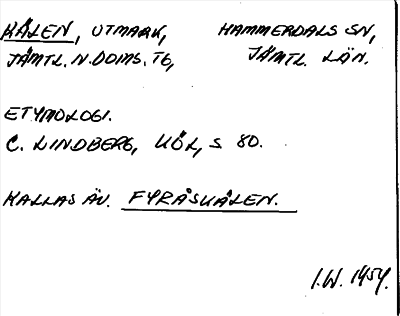 KÅLEN, UTMARK, HAMMERDALS SN,
JÄMTL. N. DOMS. T6, JÄMTL. LÄN.
ETYMOLOGI.
C. LINDBERG, KÖL, S. 80.
KALLAS ÄV. FYRÅSKÅLEN.
I.W. 1954.